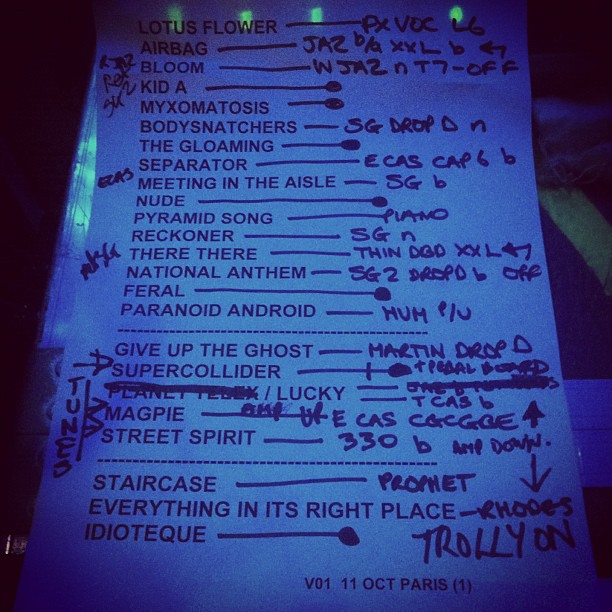 LOTUS FLOWER PX VOC L6
AIRBAG JAZ b/g XXL b
BLOOM WJAZ n T7-OFF
KID A
MYXOMATOSIS
BODYSNATCHERS SG DROP D n
THE GLOAMING
SEPARATOR ECAS CAP 6 b
ECAS MEETING IN THE AISLE SG b
NUDE
PYRAMID SONG PIANO
RECKONER SG n
THERE THERE THIN DGD XXL
NATIONAL ANTHEM SG2 DROP D b OFF
FERAL
PARANOID ANDROID HUM P/U
GIVE UP THE GHOST MARTIN DROP D
SUPERCOLLIDER + PEDAL BOARD
PLANET TELEX / LUCKY TCAS b
MAGPIE AMP UP E CAS CGCGBE
STREET SPIRIT 330 b AMP DOWN.
TUNES
STAIRCASE PROPHET
EVERYTHING IN ITS RIGHT PLACE RHODES
IDIOTEQUE TROLLY ON
V01 11 OCT PARIS (1)